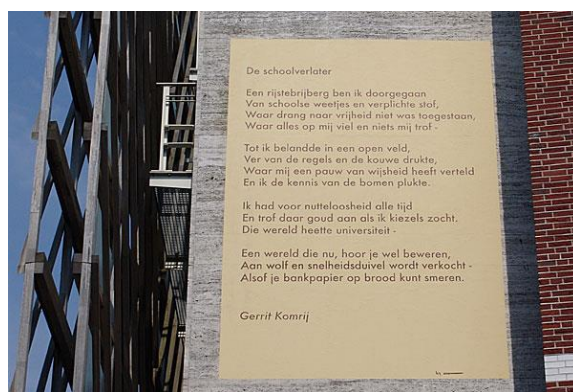 De schoolverlater
Een rijstebrijberg ben ik doorgegaan
Van schoolse weetjes en verplichte stof,
Waar drang naar vrijheid niet was toegestaan,
Waar alles op mij viel en niets mij trof -
Tot ik belandde in een open veld,
Ver van de regels en de kouwe drukte,
Waar mij een pauw van wijsheid heeft verteld
En ik de kennis van de bomen plukte.
Ik had voor nutteloosheid alle tijd
En trof daar goud aan als ik kiezels zocht.
Die wereld heette universiteit -
Een wereld die nu, hoor je wel beweren,
Aan wolf en snelheidsduivel wordt verkocht -
Alsof je bankpapier op brood kunt smeren.
Gerrit Komrij